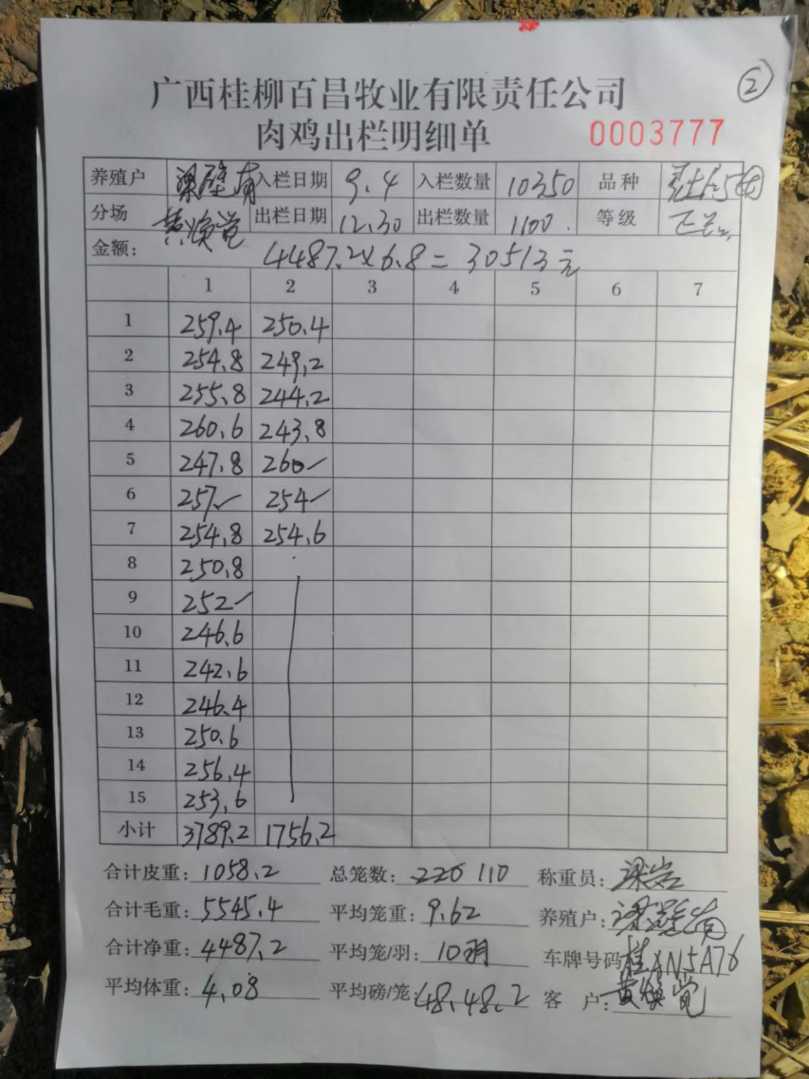 ②
广西桂柳百昌牧业有限责任公司
肉鸡出栏明细单 0003777
养殖户 入栏日期 9.4 入栏数量 10350 品种
分场 黄焕觉 出栏日期 12.30 出栏数量 1100. 等级
金额: 4487.2×6.8=30513元
1 2 3 4 5 6 7
1 259.4 250.4
2 254.8 249.2
3 255.8 244.2
4 260.6 243.8
5 247.8 260✓
6 257✓ 254✓
7 254.8 254.6
8 250.8
9 252✓
10 246.6
11 242.6
12 246.4
13 250.6
14 256.4
15 253.6
小计 3789.2 1756.2
合计皮重: 1058.2 总笼数: 220 110 称重员:
合计毛重: 5545.4 平均笼重: 9.62 养殖户:
合计净重: 4487.2 平均笼/羽: 10羽 车牌号码 桂XN5A76
平均体重: 4.08 平均磅/笼: 48.48.2 客 户: 黄焕觉